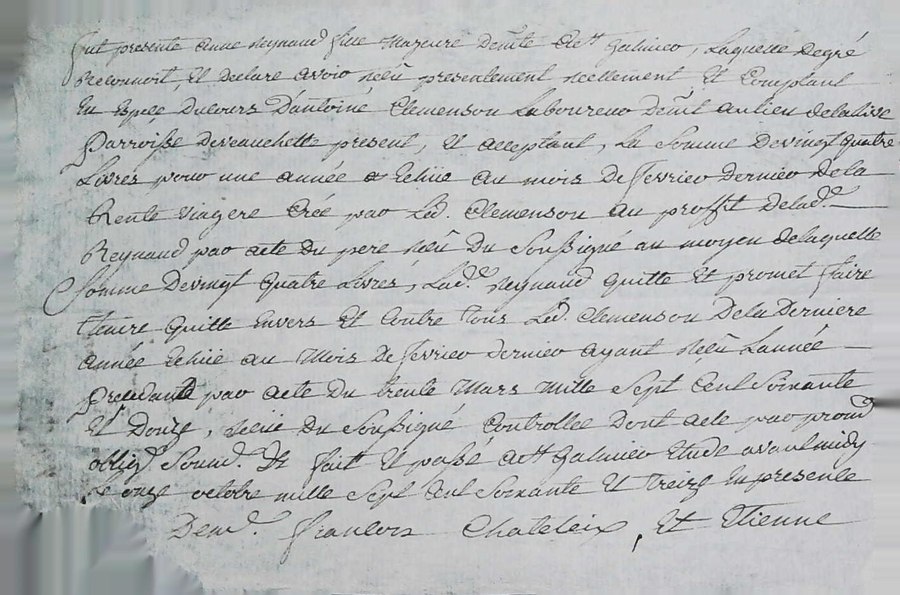 fut presente anne Reynaud fille Majeure demte a st Galmier, Laquelle degré
Reconnoit, Et declare avoir Reçû presentement Reellement Et Comptant
En Espee Ducours D'antoine Clemenson Laboureur demt au lieu delalive
Parroisse deveauchette present, Et acceptant, La Somme Devingt quatre
Livres pour une année Echüe au mois De fevrier dernier De la
Rente viagere crée par Led. Clemenson au proffit Delad.e
Reynaud par acte du pere Reçû du Soussigné au moyen delaquelle
Somme Devingt quatre Livres, Lad.e Reynaud quitte Et promet faire
tenire quitte Envers Et Contre tous Led. Clemenson De la Derniere
année Echüe au Mois De fevrier dernier ayant Reçû Lannée
precedante par acte Du trente Mars mille Sept Cent Soixante
Et Douze, Reçue du Soussigné Controllee Dont acte par prom.
oblig. Soum. &c fait Et passé a st Galmier Etude avant midy
Le onze octobre mille Sept Cent Soixante Et treize En presence
De m.e françois Chateleix, Et Etienne